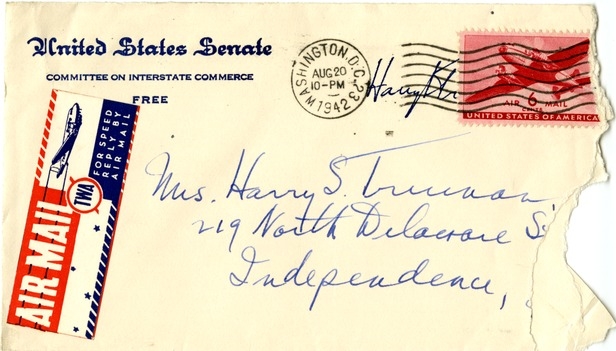 United States Senate
COMMITTEE ON INTERSTATE COMMERCE
FREE
WASHINGTON, D.C. 23
AUG 20
10-PM
1942
Harry
AIR 6 MAIL
CENTS
UNITED STATES OF AMERICA
AIR MAIL
TWA
FOR SPEED
REPLY BY
AIR MAIL
Mrs. Harry S. Truman
219 North Delaware
Independence,